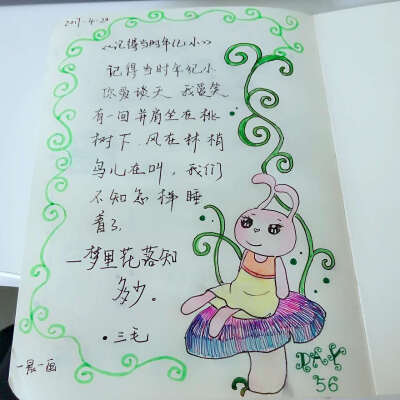 2017-4-20
《记得当时年纪小》
记得当时年纪小
你爱谈天 我爱笑
有一回并肩坐在桃
树下.风在林梢
鸟儿在叫，我们
不知怎样睡
着了.
一梦里花落知
多少。
·三毛
一晨一画
DAY
56